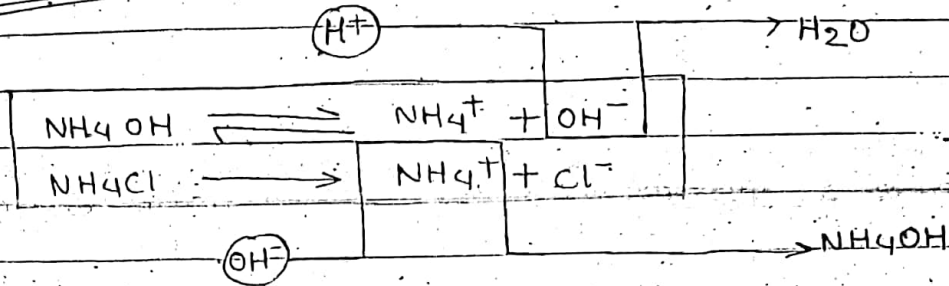 H+ → H2O
NH4OH ⇌ NH4+ + OH-
NH4Cl → NH4+ + Cl-
OH- → NH4OH